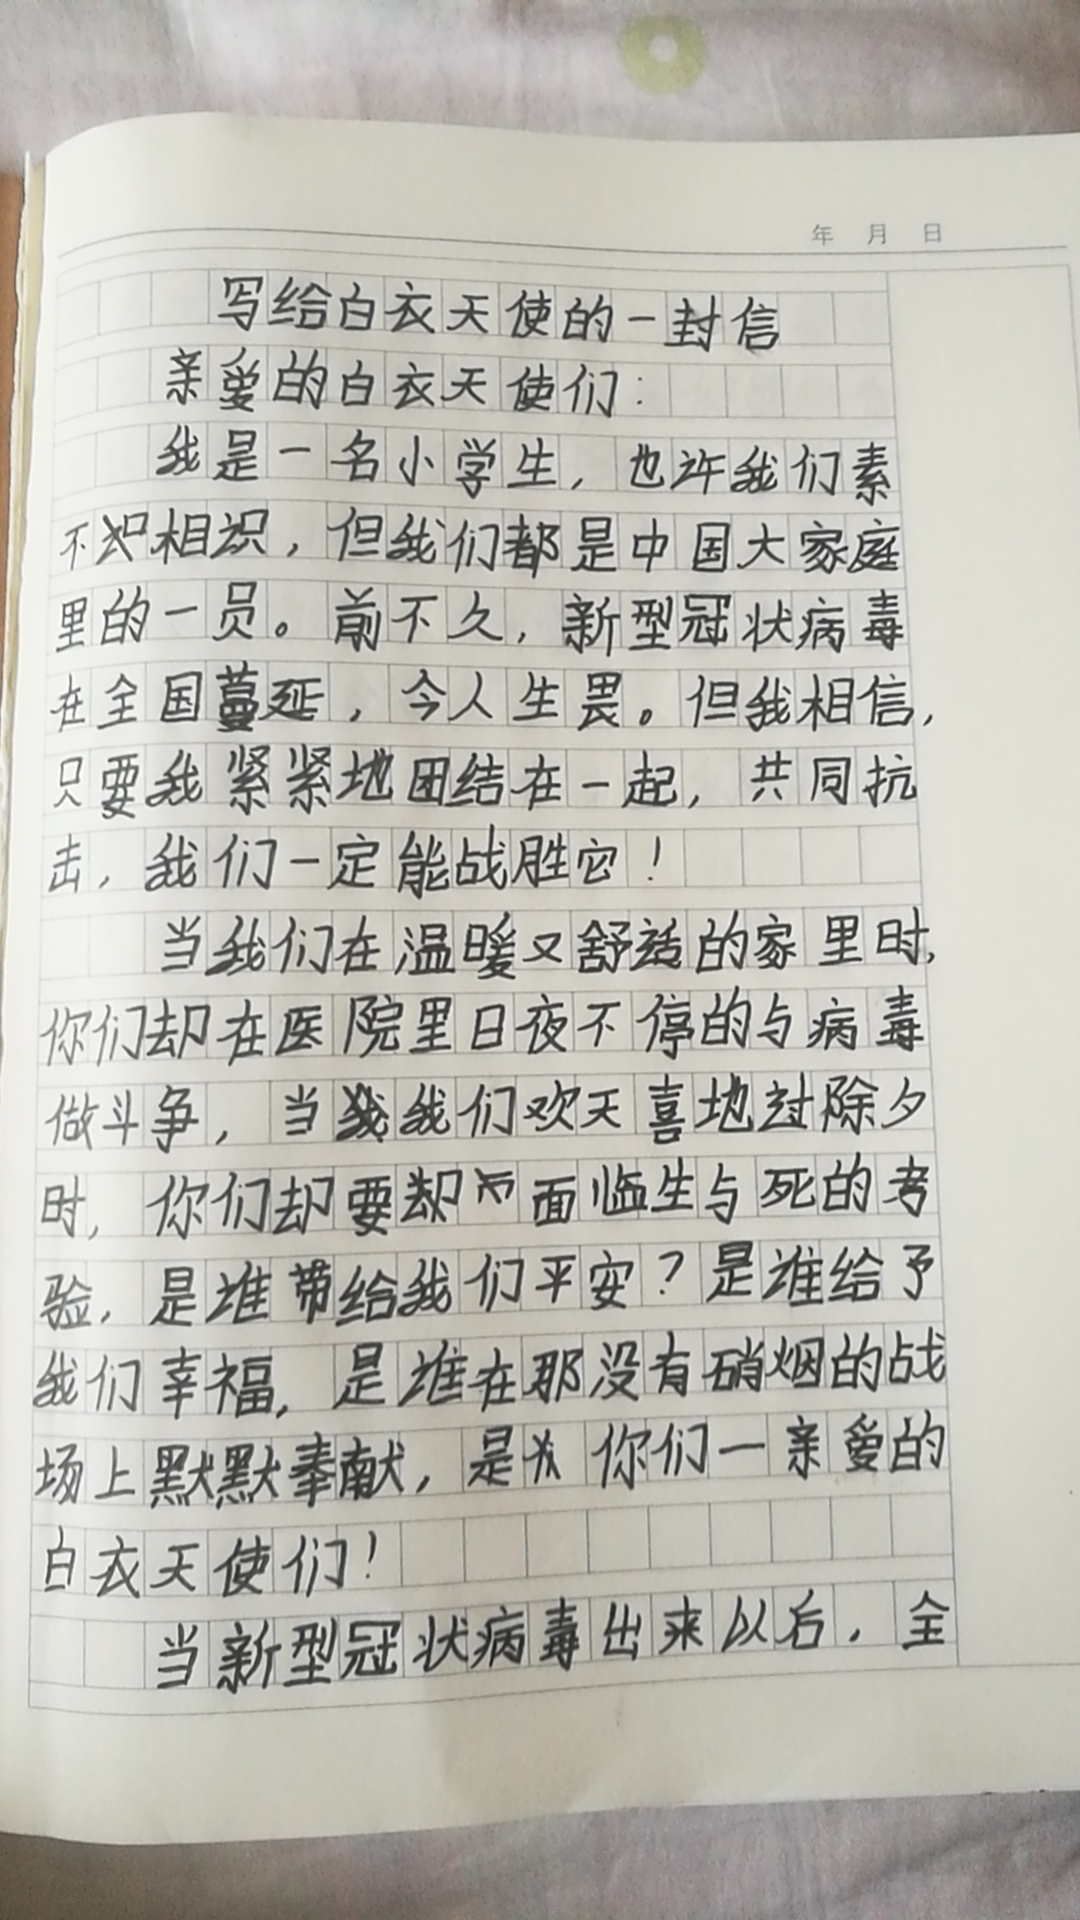 年 月 日
写给白衣天使的一封信
亲爱的白衣天使们:
我是一名小学生,也许我们素
不相识,但我们都是中国大家庭
里的一员。前不久,新型冠状病毒
在全国蔓延,今人生畏。但我相信,
只要我紧紧地团结在一起,共同抗
击,我们一定能战胜它!
当我们在温暖又舒适的家里时,
你们却在医院里日夜不停的与病毒
做斗争,当我们欢天喜地过除夕
时,你们却要面临生与死的考
验,是谁带给我们平安?是谁给予
我们幸福,是谁在那没有硝烟的战
场上默默奉献,是你们一亲爱的
白衣天使们!
当新型冠状病毒出来以后,全